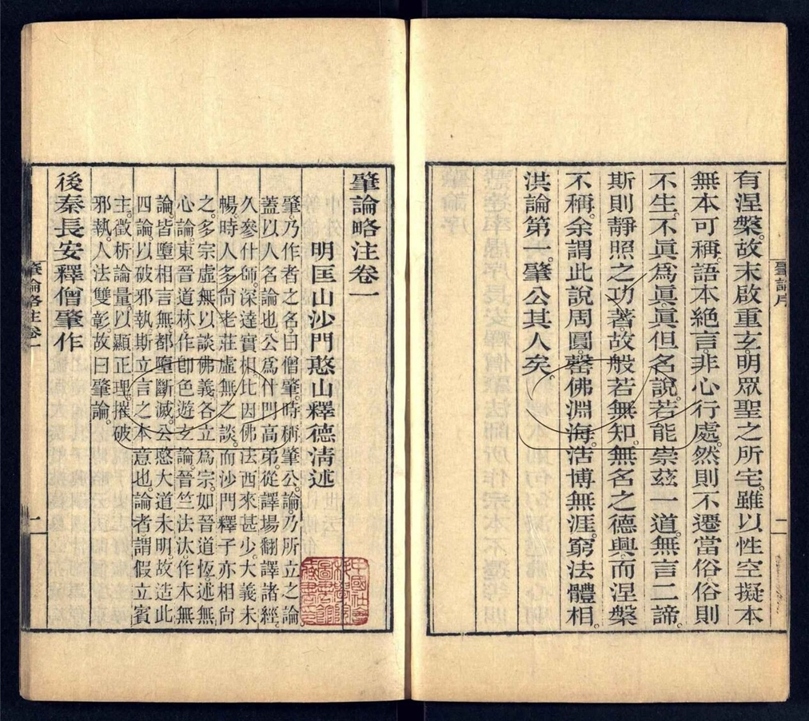 有涅槃故末啟重玄明眾聖之所宅雖以性空擬本
無本可稱語本絕言非心行處然則不遷當俗俗則
不生不眞爲眞眞但名說若能崇茲一道無言二諦
斯則靜照之功著故般若無知無名之德興而涅槃
不稱余謂此說周圓罄佛淵海浩博無涯窮法體相
洪論第一肇公其人矣
肇論序
二
肇論略注卷一
明匡山沙門憨山釋德清述
肇乃作者之名曰僧肇時稱肇公論乃所立之論
蓋以人名論也公爲什門高弟從譯場翻譯諸經
久參什師深達實相比因佛法西來甚少大義未
暢時人多尙老莊虛無之談而沙門釋子亦相尙
之多宗虛無以談佛義各立爲宗如晉道恆述無
心論東晉道林作卽色遊玄論晉竺法汰作本無
論皆墮相言無都墮斷滅公愍大道未明故造此
四論以破邪執斯立言之本意也論者謂假立賓
主徵析論量以顯正理摧破
邪執人法雙彰故曰肇論
後秦長安釋僧肇作
肇論略注卷一
二